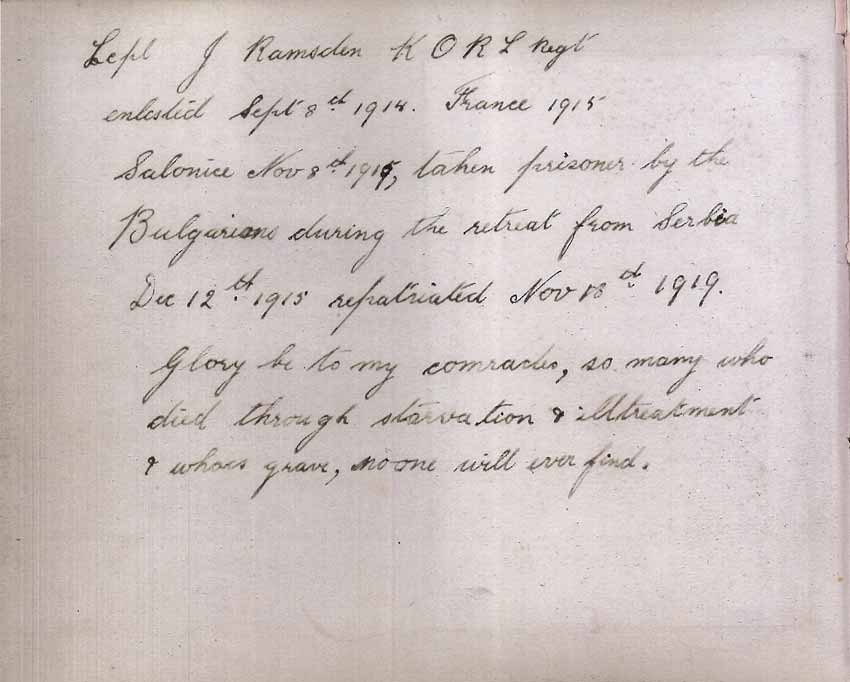 Lcpl J Ramsden K O R L Regt
enlested Sept 8th 1914. France 1915
Salonice Nov 8th 1915, taken prisoner by the
Bulgarians during the retreat from Serbia
Dec 12th 1915 repatriated Nov 18th 1919.
Glory be to my comrades, so many who
died through starvation & illtreatment
& whoes grave, no one will ever find.